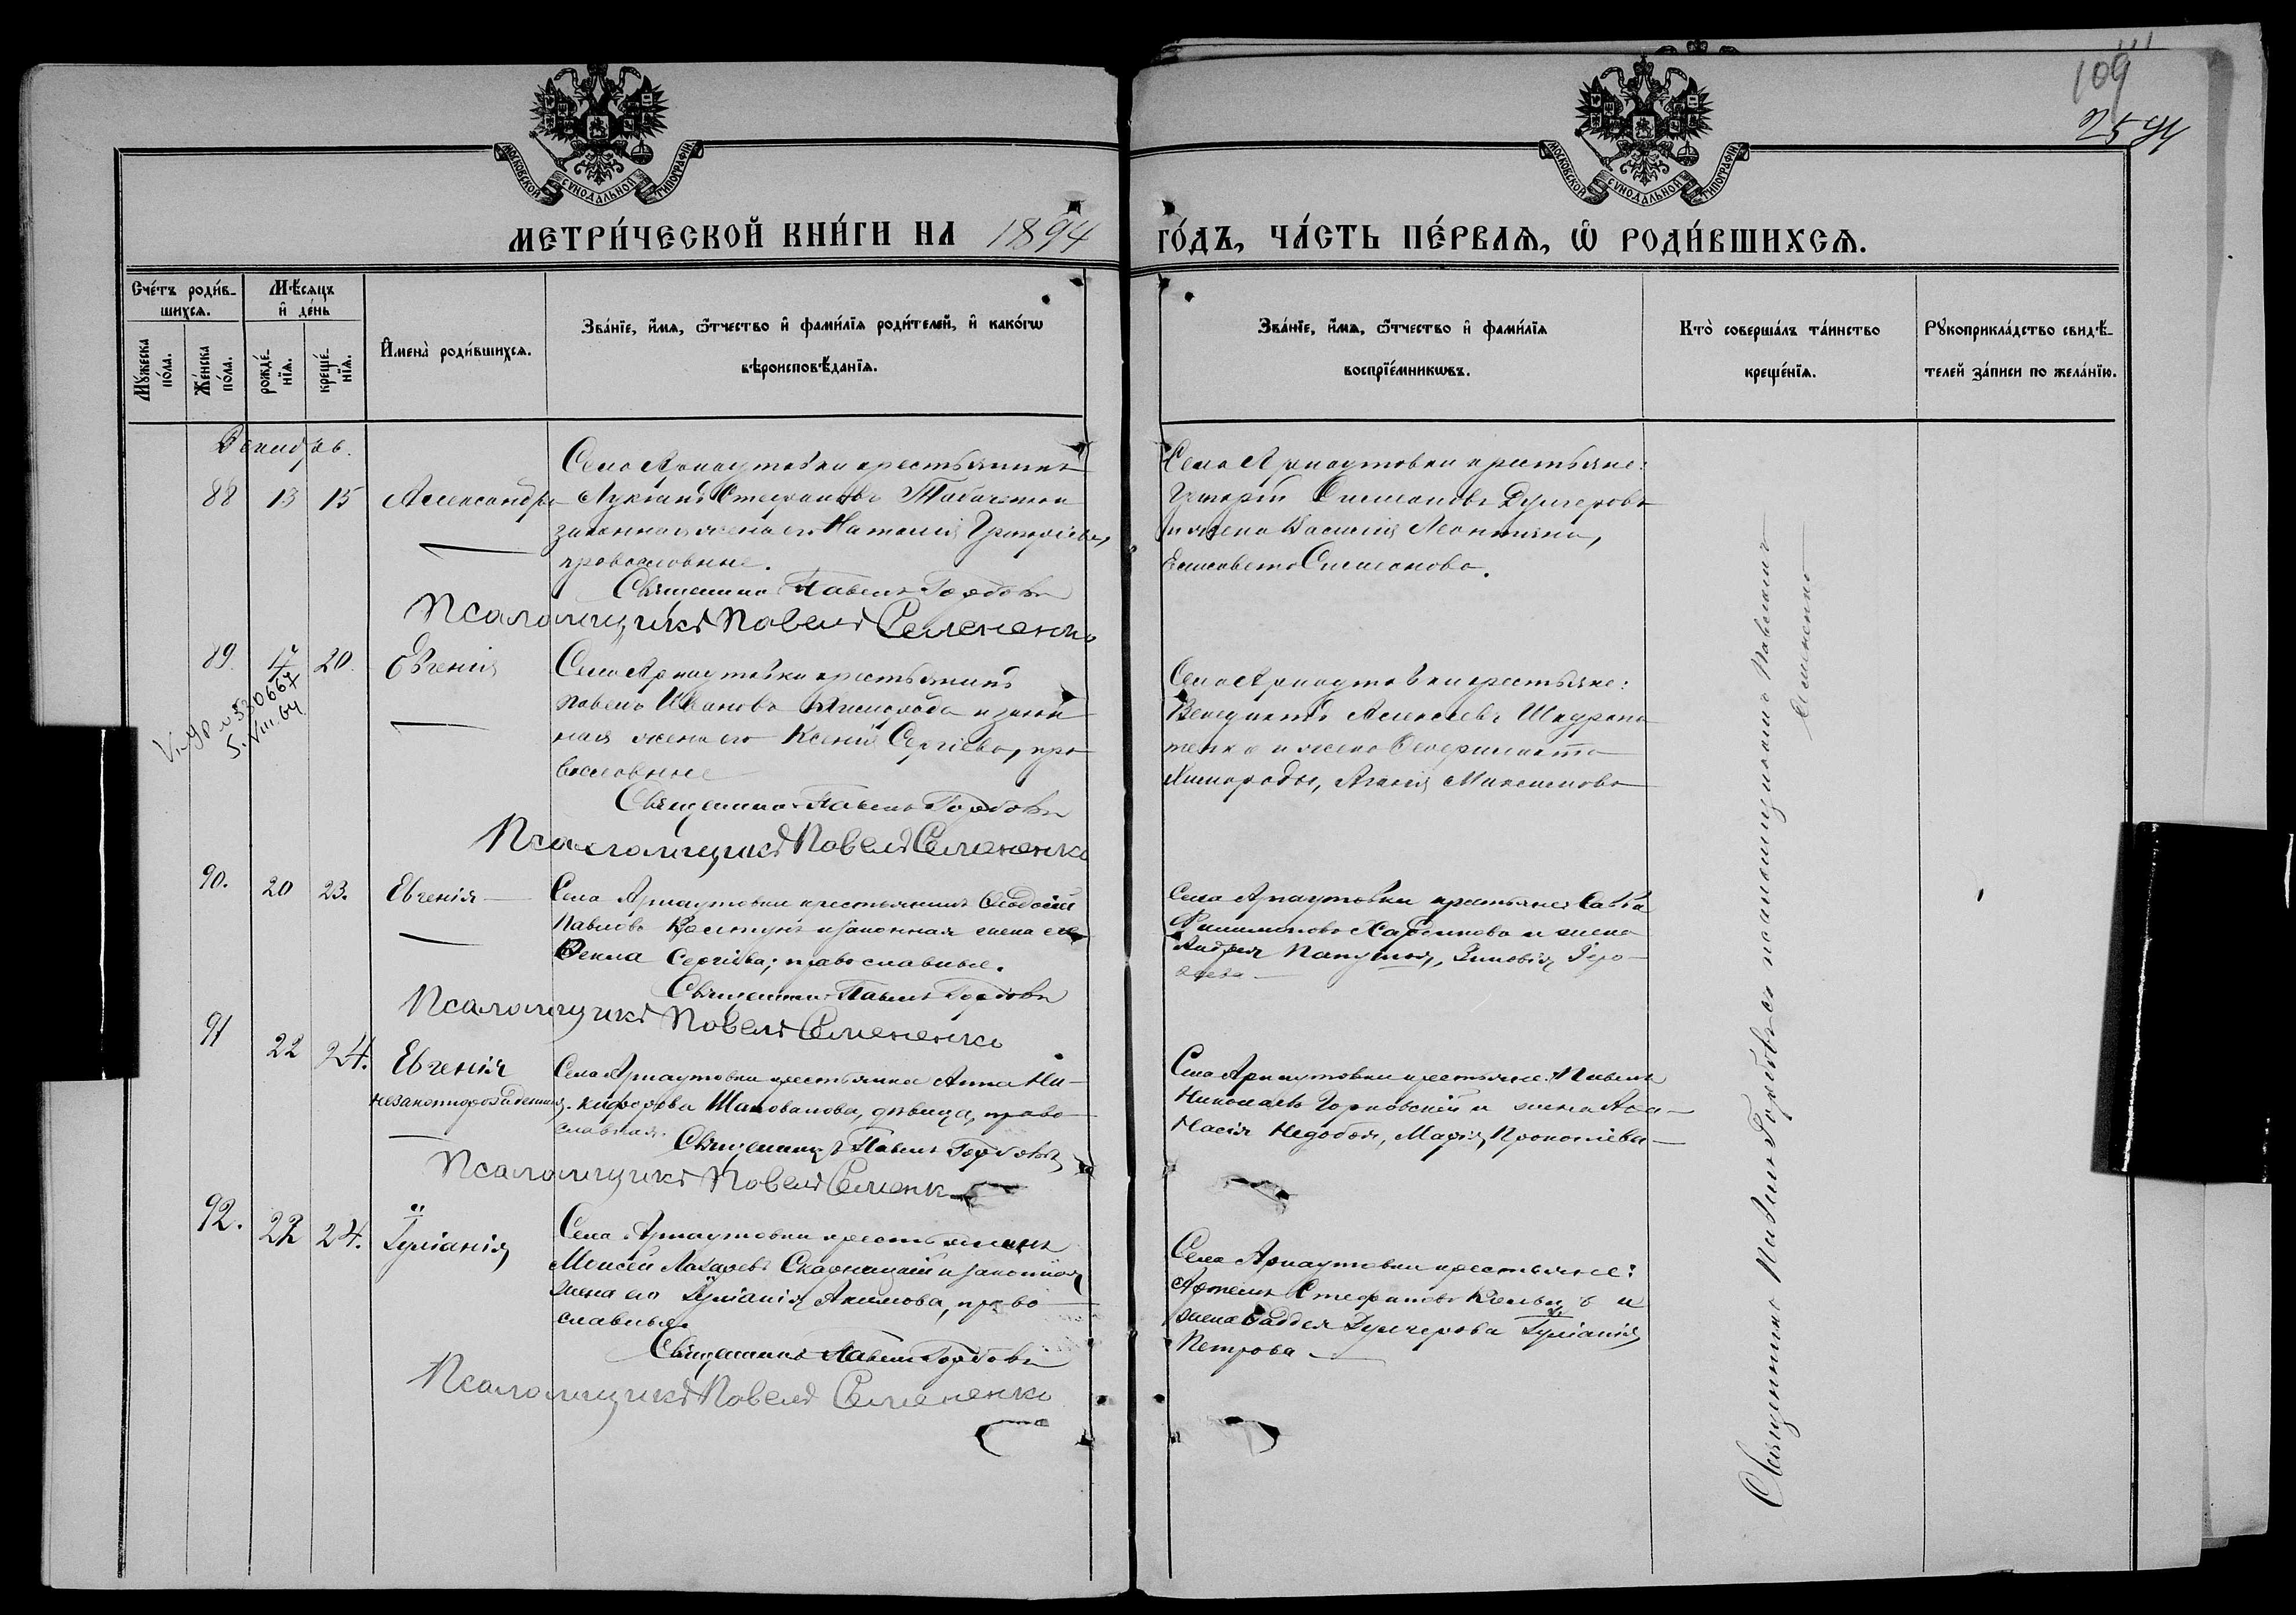 109
25 94
МОСКОВСКОЙ СУНОДАЛЬНОЙ ТИПОГРАФІИ
МОСКОВСКОЙ СУНОДАЛЬНОЙ ТИПОГРАФІИ
МЕТРИ́ЧЕСКОЙ КНИ́ГИ НА 1894
ГО́ДЪ, ЧА́СТЬ ПЕ́РВАѦ, Ѡ҆ РОДИ́ВШИХСѦ.
Сче́тъ роди́в-
шихсѧ.
Мꙋ́жеска по́ла.
Же́нска по́ла.
Мѣ́сяцъ
и҆ де́нь
рожде́-нїѧ.
креще́-нїѧ.
И҆мена̀ роди́вшихсѧ.
Зва́нїе, и҆́мѧ, ѻ҆́тчество и҆ фами́лїѧ роди́телей, и҆ како́гѡ
вѣроисповѣ́данїѧ.
Зва́нїе, и҆́мѧ, ѻ҆́тчество и҆ фами́лїѧ
воспрїе́мникѡвъ.
Кто̀ соверша́лъ та́инство
креще́нїѧ.
Рꙋкоприкла́дство свидѣ́-
телей за́писи по жела́нїю.
Декабрь.
88 13 15 Александра
Села Арнаутовки крестьянинъ
Лукіанъ Стефановъ
законная жена его Наталія Григоріева,
православные.
Священникъ Павелъ Горбовъ
Псаломщикъ Павелъ Семененко
Села Арнаутовки крестьяне:
Григорій Симеоновъ Дулгеровъ
и жена Василія Леонтіяна,
Елисавета Симеонова.
89. 17 20. Евгенія
Села Арнаутовки крестьянинъ
Павелъ Ивановъ и закон
ная жена его Ксенія Сергіева, пра
вославные
Священникъ Павелъ Горбовъ
Псаломщикъ Павелъ Семененко
V-ЯР № 530667
5.VIII.64
Села Арнаутовки крестьяне:
Венедиктъ Алексеевъ Шкурапа
тенко и жена
Агафія Максимова
90. 20 23. Евгенія
Села Арнаутовки крестьянинъ Ѳеодосій
Павловъ Колтунъ и законная жена его
Ѳекла Сергіева; православные.
Священникъ Павелъ Горбовъ
Псаломщикъ Павелъ Семененко
Села Арнаутовки крестьяне: Савва
Филипповъ и жена
Андрея Папуши, Зиновія
91 22 24. Евгенія
незаконнорожденная.
Села Арнаутовки крестьянка Анна Ни-
кифорова Шаповалова, дѣвица, право
славная.
Священникъ Павелъ Горбовъ
Псаломщикъ Павелъ Семененко
Села Арнаутовки крестьяне: Павелъ
Николаевъ и жена Аѳа-
насія Недобоя, Марія Прокопіева
92. 22 24. Іуліанія
Села Арнаутовки крестьянинъ
Моисей Лазаревъ Скарницкій и законная
жена его Іуліанія Акимова, право
славные.
Священникъ Павелъ Горбовъ
Псаломщикъ Павелъ Семененко
Села Арнаутовки крестьяне:
Артемъ Стефановъ и
жена Ѳаддея Дулгерова Іуліанія
Петрова
Священникъ Павелъ Горбовъ съ псаломщикомъ Павломъ
Семененко